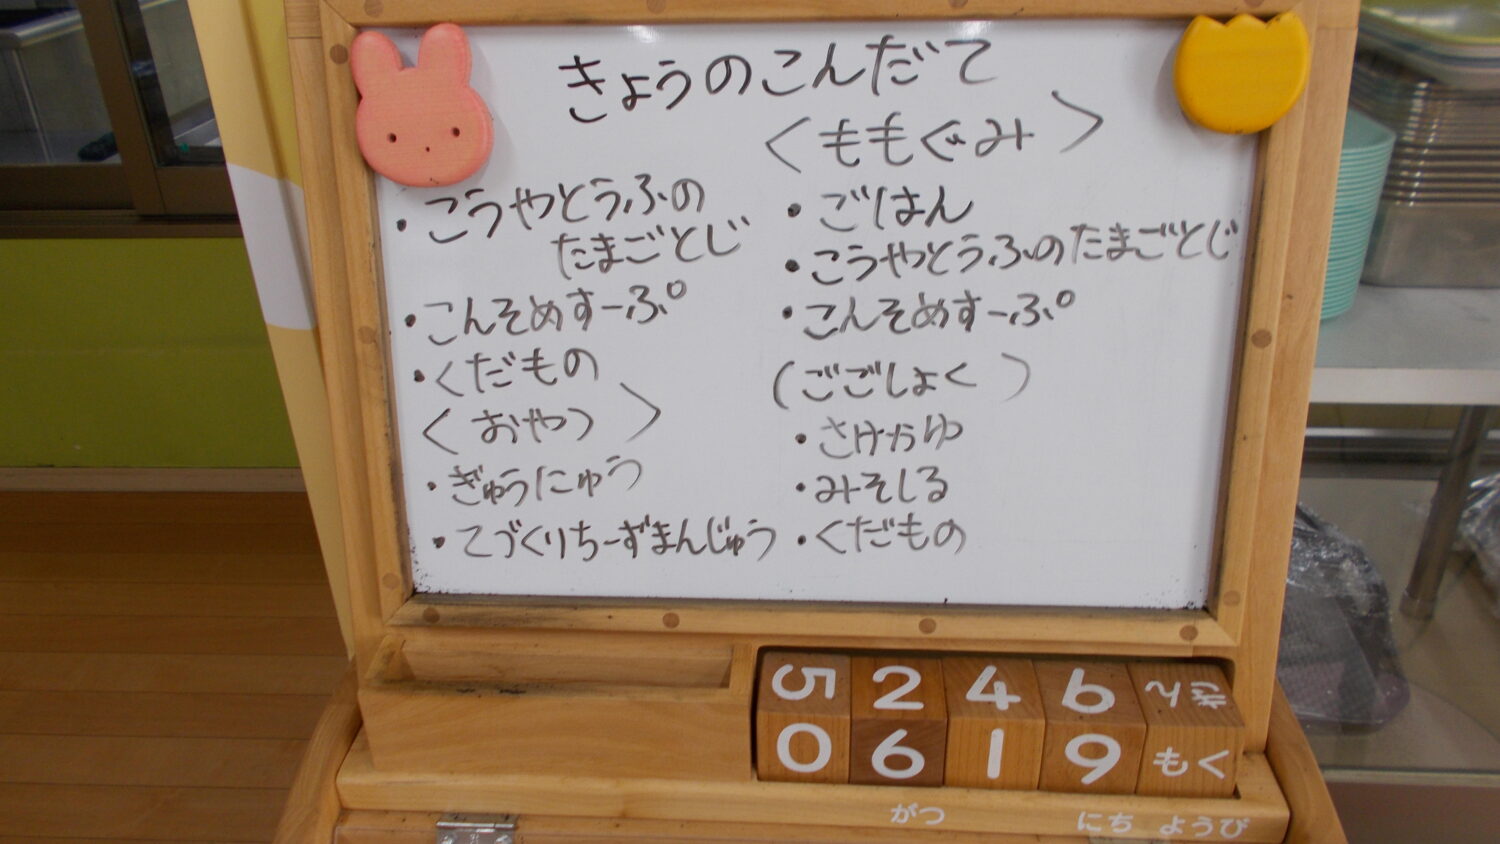 きょうのこんだて
・こうやとうふの
たまごとじ
・こんそめすーぷ
・くだもの
<おやつ>
・ぎゅうにゅう
・てづくりちーずまんじゅう
<ももぐみ>
・ごはん
・こうやとうふのたまごとじ
・こんそめすーぷ
(ごごしょく)
・さけかゆ
・みそしる
・くだもの
5 2 4 6 きん
0 6 1 9 もく
がつ にち ようび